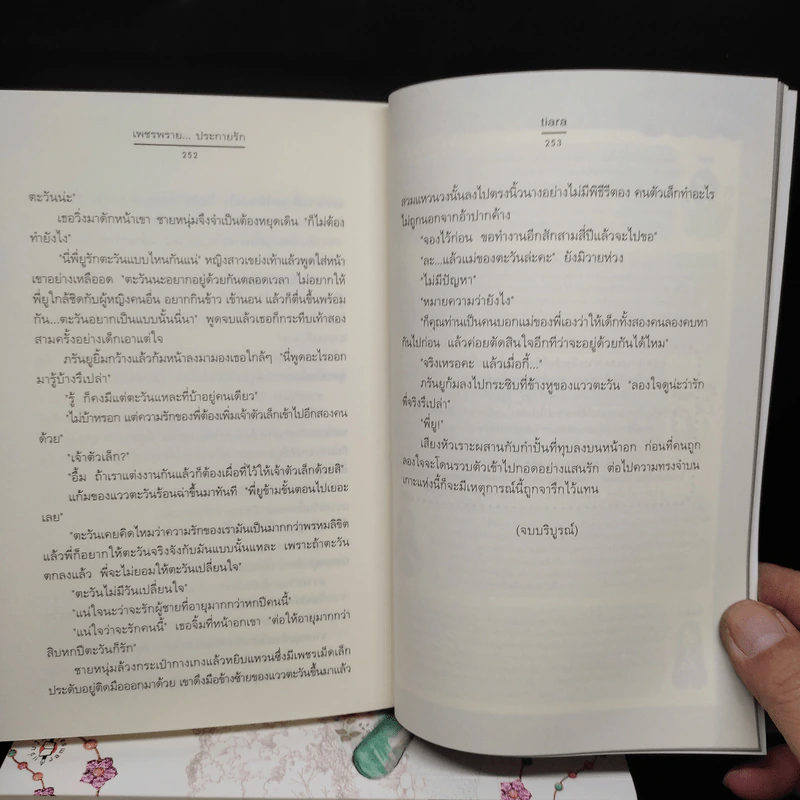 เพชรพราย... ประกายรัก
252
ตะวันน่ะ"
เธอวิ่งมาดักหน้าเขา ชายหนุ่มจึงจำเป็นต้องหยุดเดิน "ก็ไม่ต้อง
ทำยังไง"
"นี่พี่ยูรักตะวันแบบไหนกันแน่" หญิงสาวเขย่งเท้าแล้วพูดใส่หน้า
เขาอย่างเหลืออด "ตะวันนะอยากอยู่ด้วยกันตลอดเวลา ไม่อยากให้
พี่ยูใกล้ชิดกับผู้หญิงคนอื่น อยากกินข้าว เข้านอน แล้วก็ตื่นขึ้นพร้อม
กัน...ตะวันอยากเป็นแบบนั้นนี่นา" พูดจบแล้วเธอก็กระทืบเท้าสอง
สามครั้งอย่างเด็กเอาแต่ใจ
ภรันยูยิ้มกว้างแล้วก้มหน้าลงมามองเธอใกล้ๆ "นี่พูดอะไรออก
มารู้บ้างรึเปล่า"
"รู้ ก็คงมีแต่ตะวันแหละที่บ้าอยู่คนเดียว"
"ไม่บ้าหรอก แต่ความรักของพี่ต้องเพิ่มเจ้าตัวเล็กเข้าไปอีกสองคน
ด้วย"
"เจ้าตัวเล็ก?"
"อื้ม ถ้าเราแต่งงานกันแล้วก็ต้องเผื่อที่ไว้ให้เจ้าตัวเล็กด้วยสิ"
แก้มของแววตะวันร้อนฉ่าขึ้นมาทันที "พี่ยูข้ามขั้นตอนไปเยอะ
เลย"
"ตะวันเคยคิดไหมว่าความรักของเรามันเป็นมากกว่าพรหมลิขิต
แล้วพี่ก็อยากให้ตะวันจริงจังกับมันแบบนั้นแหละ เพราะถ้าตะวัน
ตกลงแล้ว พี่จะไม่ยอมให้ตะวันเปลี่ยนใจ"
"ตะวันไม่มีวันเปลี่ยนใจ"
"แน่ใจนะว่าจะรักผู้ชายที่อายุมากกว่าหกปีคนนี้"
"แน่ใจว่าจะรักคนนี้" เธอจิ้มที่หน้าอกเขา "ต่อให้อายุมากกว่า
สิบหกปีตะวันก็รัก"
ชายหนุ่มล้วงกระเป๋ากางเกงแล้วหยิบแหวนซึ่งมีเพชรเม็ดเล็ก
ประดับอยู่ติดมือออกมาด้วย เขาดึงมือข้างซ้ายของแววตะวันขึ้นมาแล้ว
tiara
253
สวมแหวนวงนั้นลงไปตรงนิ้วนางอย่างไม่มีพิธีรีตอง คนตัวเล็กทำอะไร
ไม่ถูกนอกจากอ้าปากค้าง
"จองไว้ก่อน ขอทำงานอีกสักสามสี่ปีแล้วจะไปขอ"
"ละ...แล้วแม่ของตะวันล่ะคะ" ยังมิวายห่วง
"ไม่มีปัญหา"
"หมายความว่ายังไง"
"ก็คุณท่านเป็นคนบอกแม่ของพี่เองว่าให้เด็กทั้งสองคนลองคบหา
กันไปก่อน แล้วค่อยตัดสินใจอีกทีว่าจะอยู่ด้วยกันได้ไหม"
"จริงเหรอคะ แล้วเมื่อกี้..."
ภรันยูก้มลงไปกระซิบที่ข้างหูของแววตะวัน "ลองใจดูน่ะว่ารัก
พี่จริงรึเปล่า"
"พี่ยู!"
เสียงหัวเราะผสานกับกำปั้นที่ทุบลงบนหน้าอก ก่อนที่คนถูก
ลองใจจะโดนรวบตัวเข้าไปกอดอย่างแสนรัก ต่อไปความทรงจำบน
เกาะแห่งนี้ก็จะมีเหตุการณ์นี้ถูกจารึกไว้แทน
(จบบริบูรณ์)